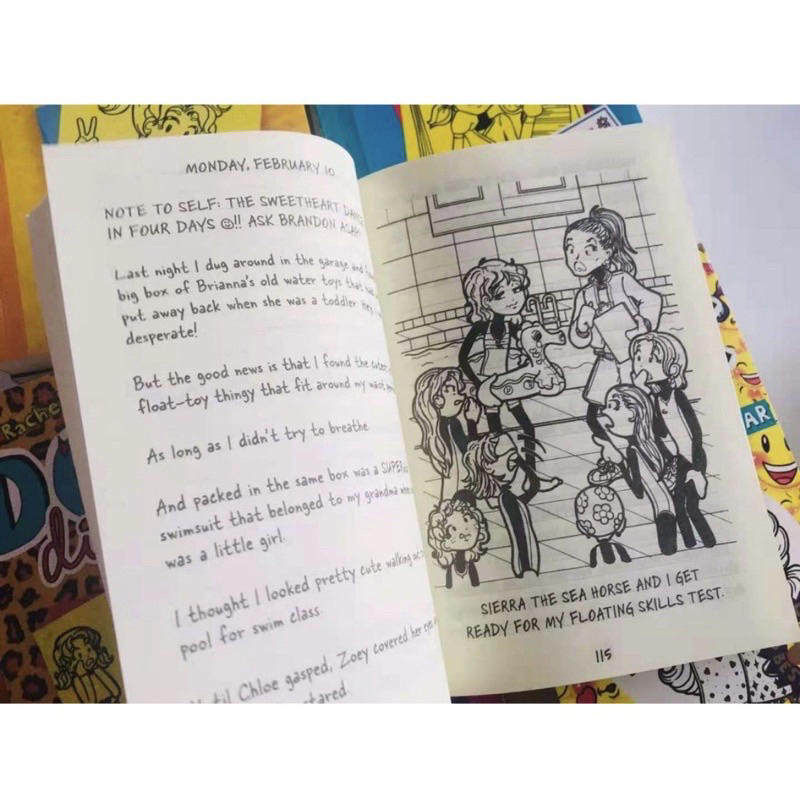 MONDAY, FEBRUARY 10
NOTE TO SELF: THE SWEETHEART
IN FOUR DAYS ☹!! ASK BRANDON
Last night I dug around in the garage and
big box of Brianna's old water toys that
put away back when she was a toddler. Hey,
desperate!
But the good news is that I found the
float-toy thingy that fit around my
As long as I didn't try to breathe
And packed in the same box was a
swimsuit that belonged to my grandma
was a little girl.
I thought I looked pretty cute walking
pool for swim class
Chloe gasped, Zoey covered her
SIERRA THE SEA HORSE AND I GET
READY FOR MY FLOATING SKILLS TEST.
115
Rache
AR